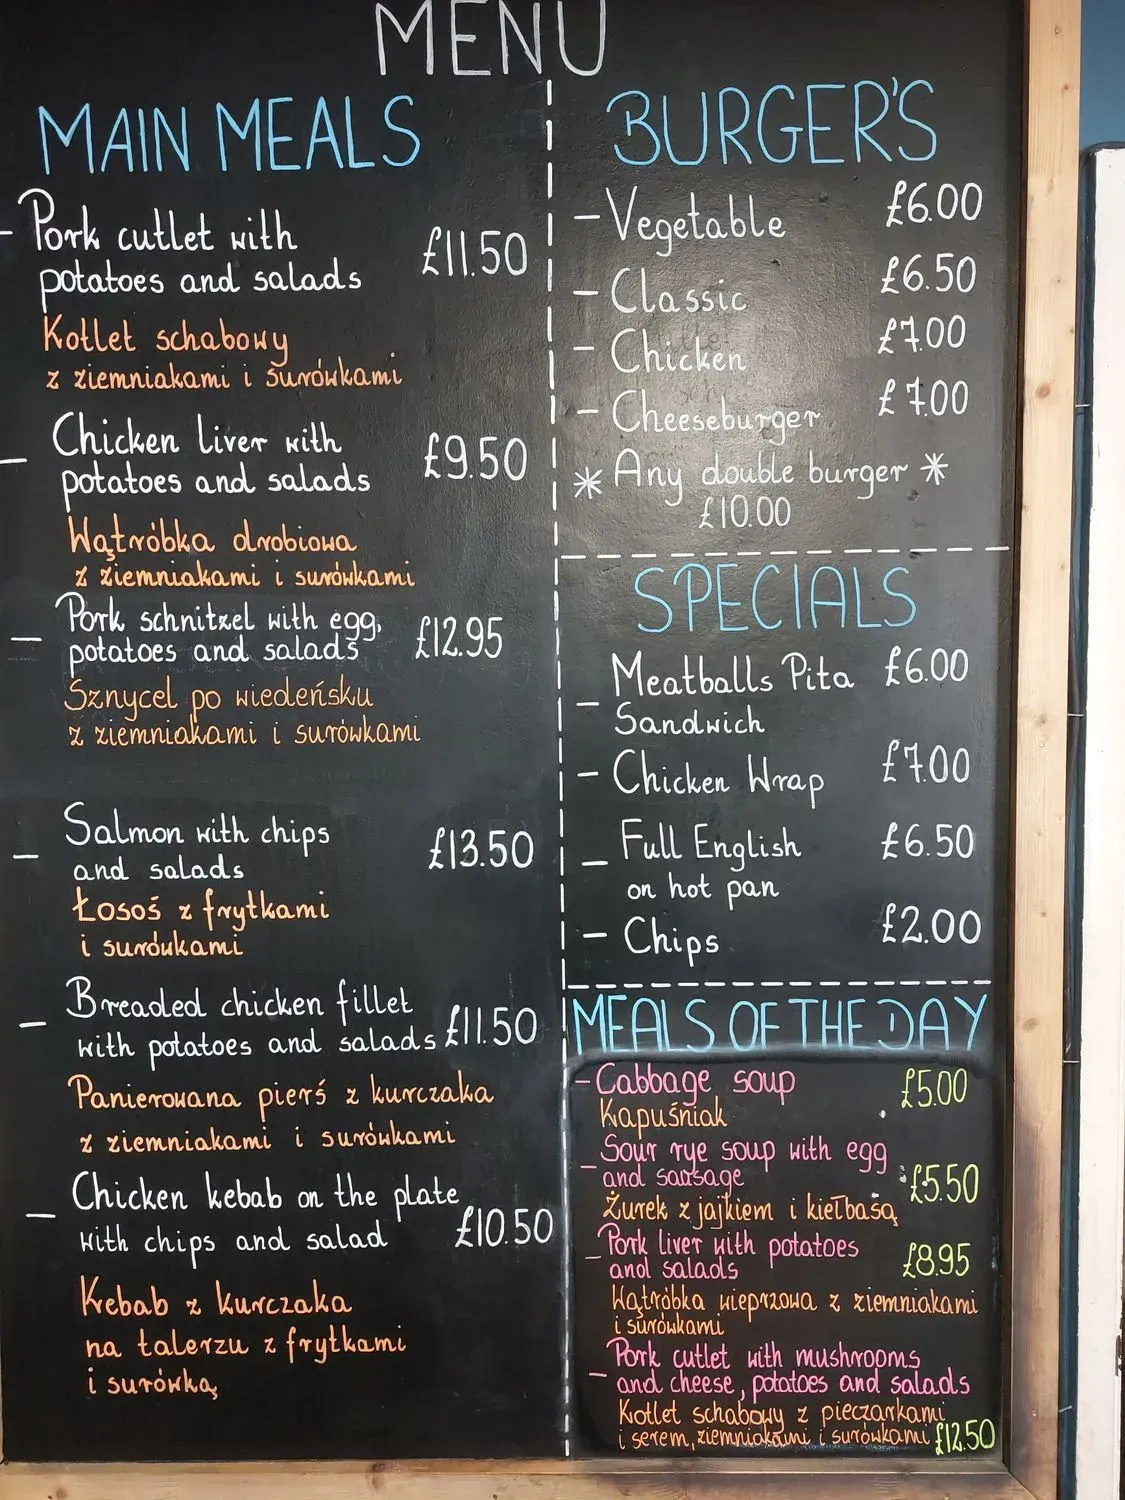 MENU
MAIN MEALS
- Pork cutlet with
potatoes and salads £11.50
Kotlet schabowy
z ziemniakami i surówkami
- Chicken liver with
potatoes and salads £9.50
Wątróbka drobiowa
z ziemniakami i surówkami
- Pork schnitzel with egg,
potatoes and salads £12.95
Sznycel po wiedeńsku
z ziemniakami i surówkami
- Salmon with chips
and salads £13.50
Łosoś z frytkami
i surówkami
- Breaded chicken fillet
with potatoes and salads £11.50
Panierowana pierś z kurczaka
z ziemniakami i surówkami
- Chicken kebab on the plate
with chips and salad £10.50
Kebab z kurczaka
na talerzu z frytkami
i surówką
BURGER'S
- Vegetable £6.00
- Classic £6.50
- Chicken £7.00
- Cheeseburger £7.00
* Any double burger *
£10.00
SPECIALS
- Meatballs Pita £6.00
Sandwich
- Chicken Wrap £7.00
- Full English £6.50
on hot pan
- Chips £2.00
MEALS OF THE DAY
- Cabbage soup £5.00
Kapuśniak
- Sour rye soup with egg
and sausage £5.50
Żurek z jajkiem i kiełbasą
- Pork liver with potatoes
and salads £8.95
Wątróbka wieprzowa z ziemniakami
i surówkami
- Pork cutlet with mushrooms
and cheese, potatoes and salads
Kotlet schabowy z pieczarkami
i serem, ziemniakami i surówkami £12.50